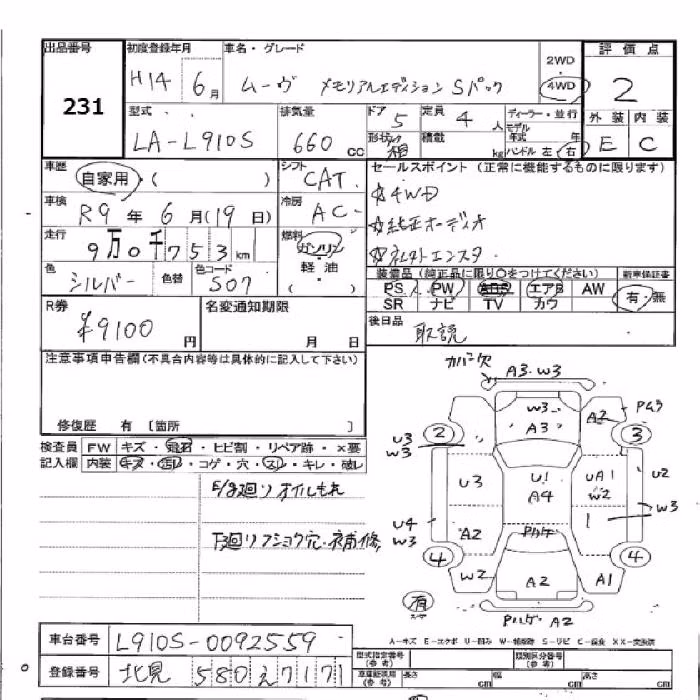 出品番号 初度登録年月 車名・グレード 評価点
231
H14 6月 ムーヴ メモリアルエディション Sパック 2WD 4WD 2
型式 排気量 ドア 5 定員 4人 ディーラー・並行 外装 内装
LA-L910S 660cc 形状 箱 積載 kg モデル年式 年 ハンドル 左・右 E C
車歴 自家用 ( ) シフト CAT セールスポイント (正常に機能するものに限ります)
車検 R9年6月(19日) 冷房 AC ☆4WD
☆純正オーディオ
走行 9万0千753km 燃料 ガソリン 軽・油
色 シルバー 色替 色コード S07 装備品 (純正品に限り○をつけてください) 新車保証書
PS PW ABS エアB AW 有・無
SR ナビ TV カワ
R券 ¥9100円 名変通知期限 月 日 後日品 取説
注意事項申告欄(不具合内容等は具体的に記入して下さい)
修復歴 有 〔箇所 〕
検査員 FW キズ・飛石・ヒビ割・リペア跡・×要
記入欄 内装 キズ・汚レ・コゲ・穴・スレ・キレ・破レ
E/g廻りオイルもれ
F廻リフショク穴・補修
カバー欠
A3・W3
W3 A3 A2
2 3
U3 W3
U3 U1 A4 UA1 W2 U2
W3
U4 W3
A2
4 4
W2 A2 A1
有
A2
車台番号 L910S-0092559
登録番号 北見 580 え 7171
A-キズ E-エクボ U-凹み W-補修跡 S-サビ C-腐食 XX-交換済
型式指定番号(参考) 類別区分番号(参考)
長さ cm 幅 cm 高さ cm